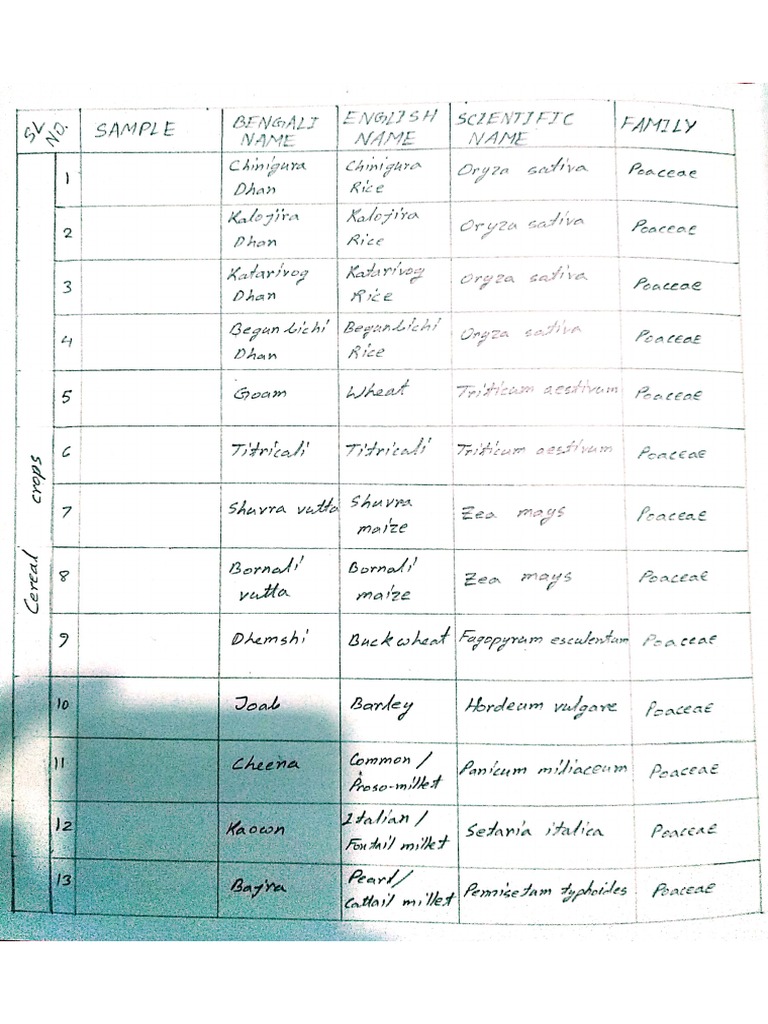 SL NO. SAMPLE BENGALI NAME ENGLISH NAME SCIENTIFIC NAME FAMILY
Cereal crops
1 Chinigura Dhan Chinigura Rice Oryza sativa Poaceae
2 Kalojira Dhan Kalojira Rice Oryza sativa Poaceae
3 Katarivog Dhan Katarivog Rice Oryza sativa Poaceae
4 Begunbichi Dhan Begunbichi Rice Oryza sativa Poaceae
5 Goam Wheat Triticum aestivum Poaceae
6 Titricali Titricali Triticum aestivum Poaceae
7 Shuvra vutta Shuvra maize Zea mays Poaceae
8 Bornali vutta Bornali maize Zea mays Poaceae
9 Dhemshi Buckwheat Fagopyrum esculentum Poaceae
10 Joab Barley Hordeum vulgare Poaceae
11 Cheena Common / Proso-millet Panicum miliaceum Poaceae
12 Kaown Italian / Foxtail millet Setaria italica Poaceae
13 Bajra Pearl/ Cattail millet Pennisetam typhoides Poaceae